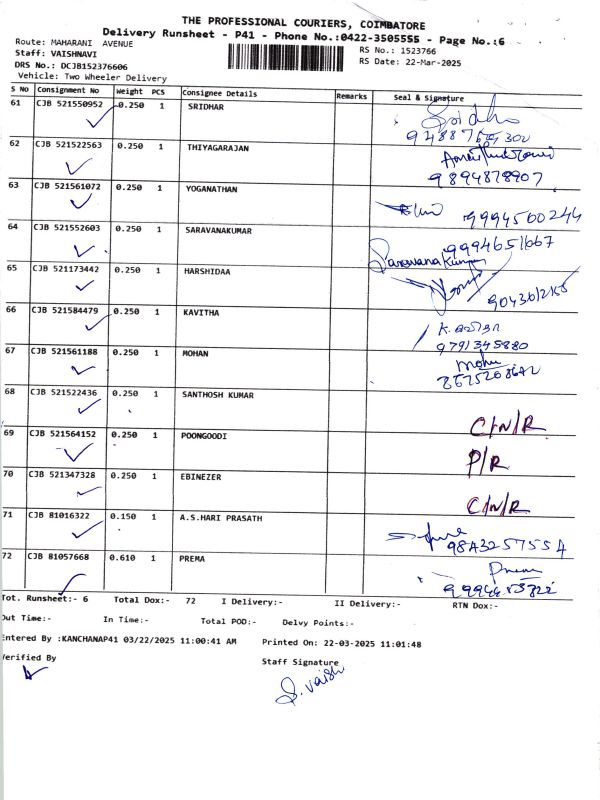 THE PROFESSIONAL COURIERS, COIMBATORE
Delivery Runsheet - P41 - Phone No.:0422-3505555 - Page No.:6
Route: MAHARANI AVENUE
RS No.: 1523766
Staff: VAISHNAVI
RS Date: 22-Mar-2025
DRS No.: DCJB152376606
Vehicle: Two Wheeler Delivery
S No Consignment No Weight PCS Consignee Details Remarks Seal & Signature
61 CJB 521550952 0.250 1 SRIDHAR Sridhar
62 CJB 521522563 0.250 1 THIYAGARAJAN
9894878907
63 CJB 521561072 0.250 1 YOGANATHAN
9994560244
64 CJB 521552603 0.250 1 SARAVANAKUMAR 9994651667
Saravana Kumar
65 CJB 521173442 0.250 1 HARSHIDAA
66 CJB 521584479 0.250 1 KAVITHA K. கவிதா
9791345880
67 CJB 521561188 0.250 1 MOHAN Mohan
68 CJB 521522436 0.250 1 SANTHOSH KUMAR C/N/R
69 CJB 521564152 0.250 1 POONGOODI P/R
70 CJB 521347328 0.250 1 EBINEZER C/N/R
71 CJB 81016322 0.150 1 A.S.HARI PRASATH
9843257554
72 CJB 81057668 0.610 1 PREMA Prema
Tot. Runsheet:- 6 Total Dox:- 72 I Delivery:- II Delivery:- RTN Dox:-
Out Time:- In Time:- Total POD:- Delvy Points:-
Entered By :KANCHANAP41 03/22/2025 11:00:41 AM Printed On: 22-03-2025 11:01:48
Verified By Staff Signature
S. Vaish